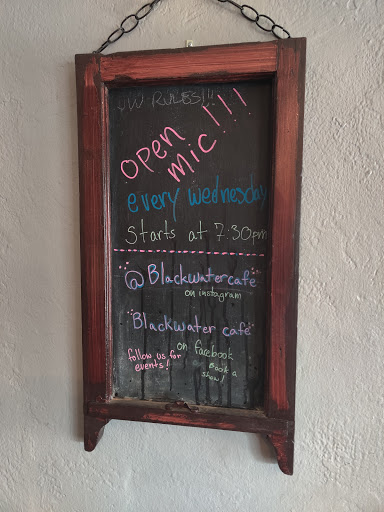 RULES!!
open
mic!!!
every wednesday
Starts at 7:30pm
@Blackwatercafe
on instagram
Blackwater café
on facebook
follow us for
events!
Book a
show!